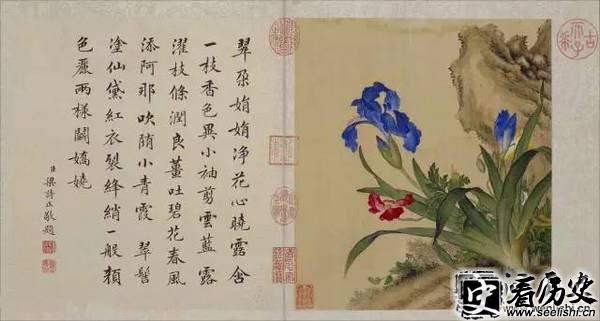 翠朶娟娟净花心曉露含
一枝香色異小袖剪雲藍露
濯枝條潤良薑吐碧花春風
添阿那吹陏小青霞 翠髻
塗仙黛紅衣裂絳綃一般顏
色麗兩樣鬬嬌嬈
臣梁詩正敬題
古希天子
史
看历史
www.seelishi.cn